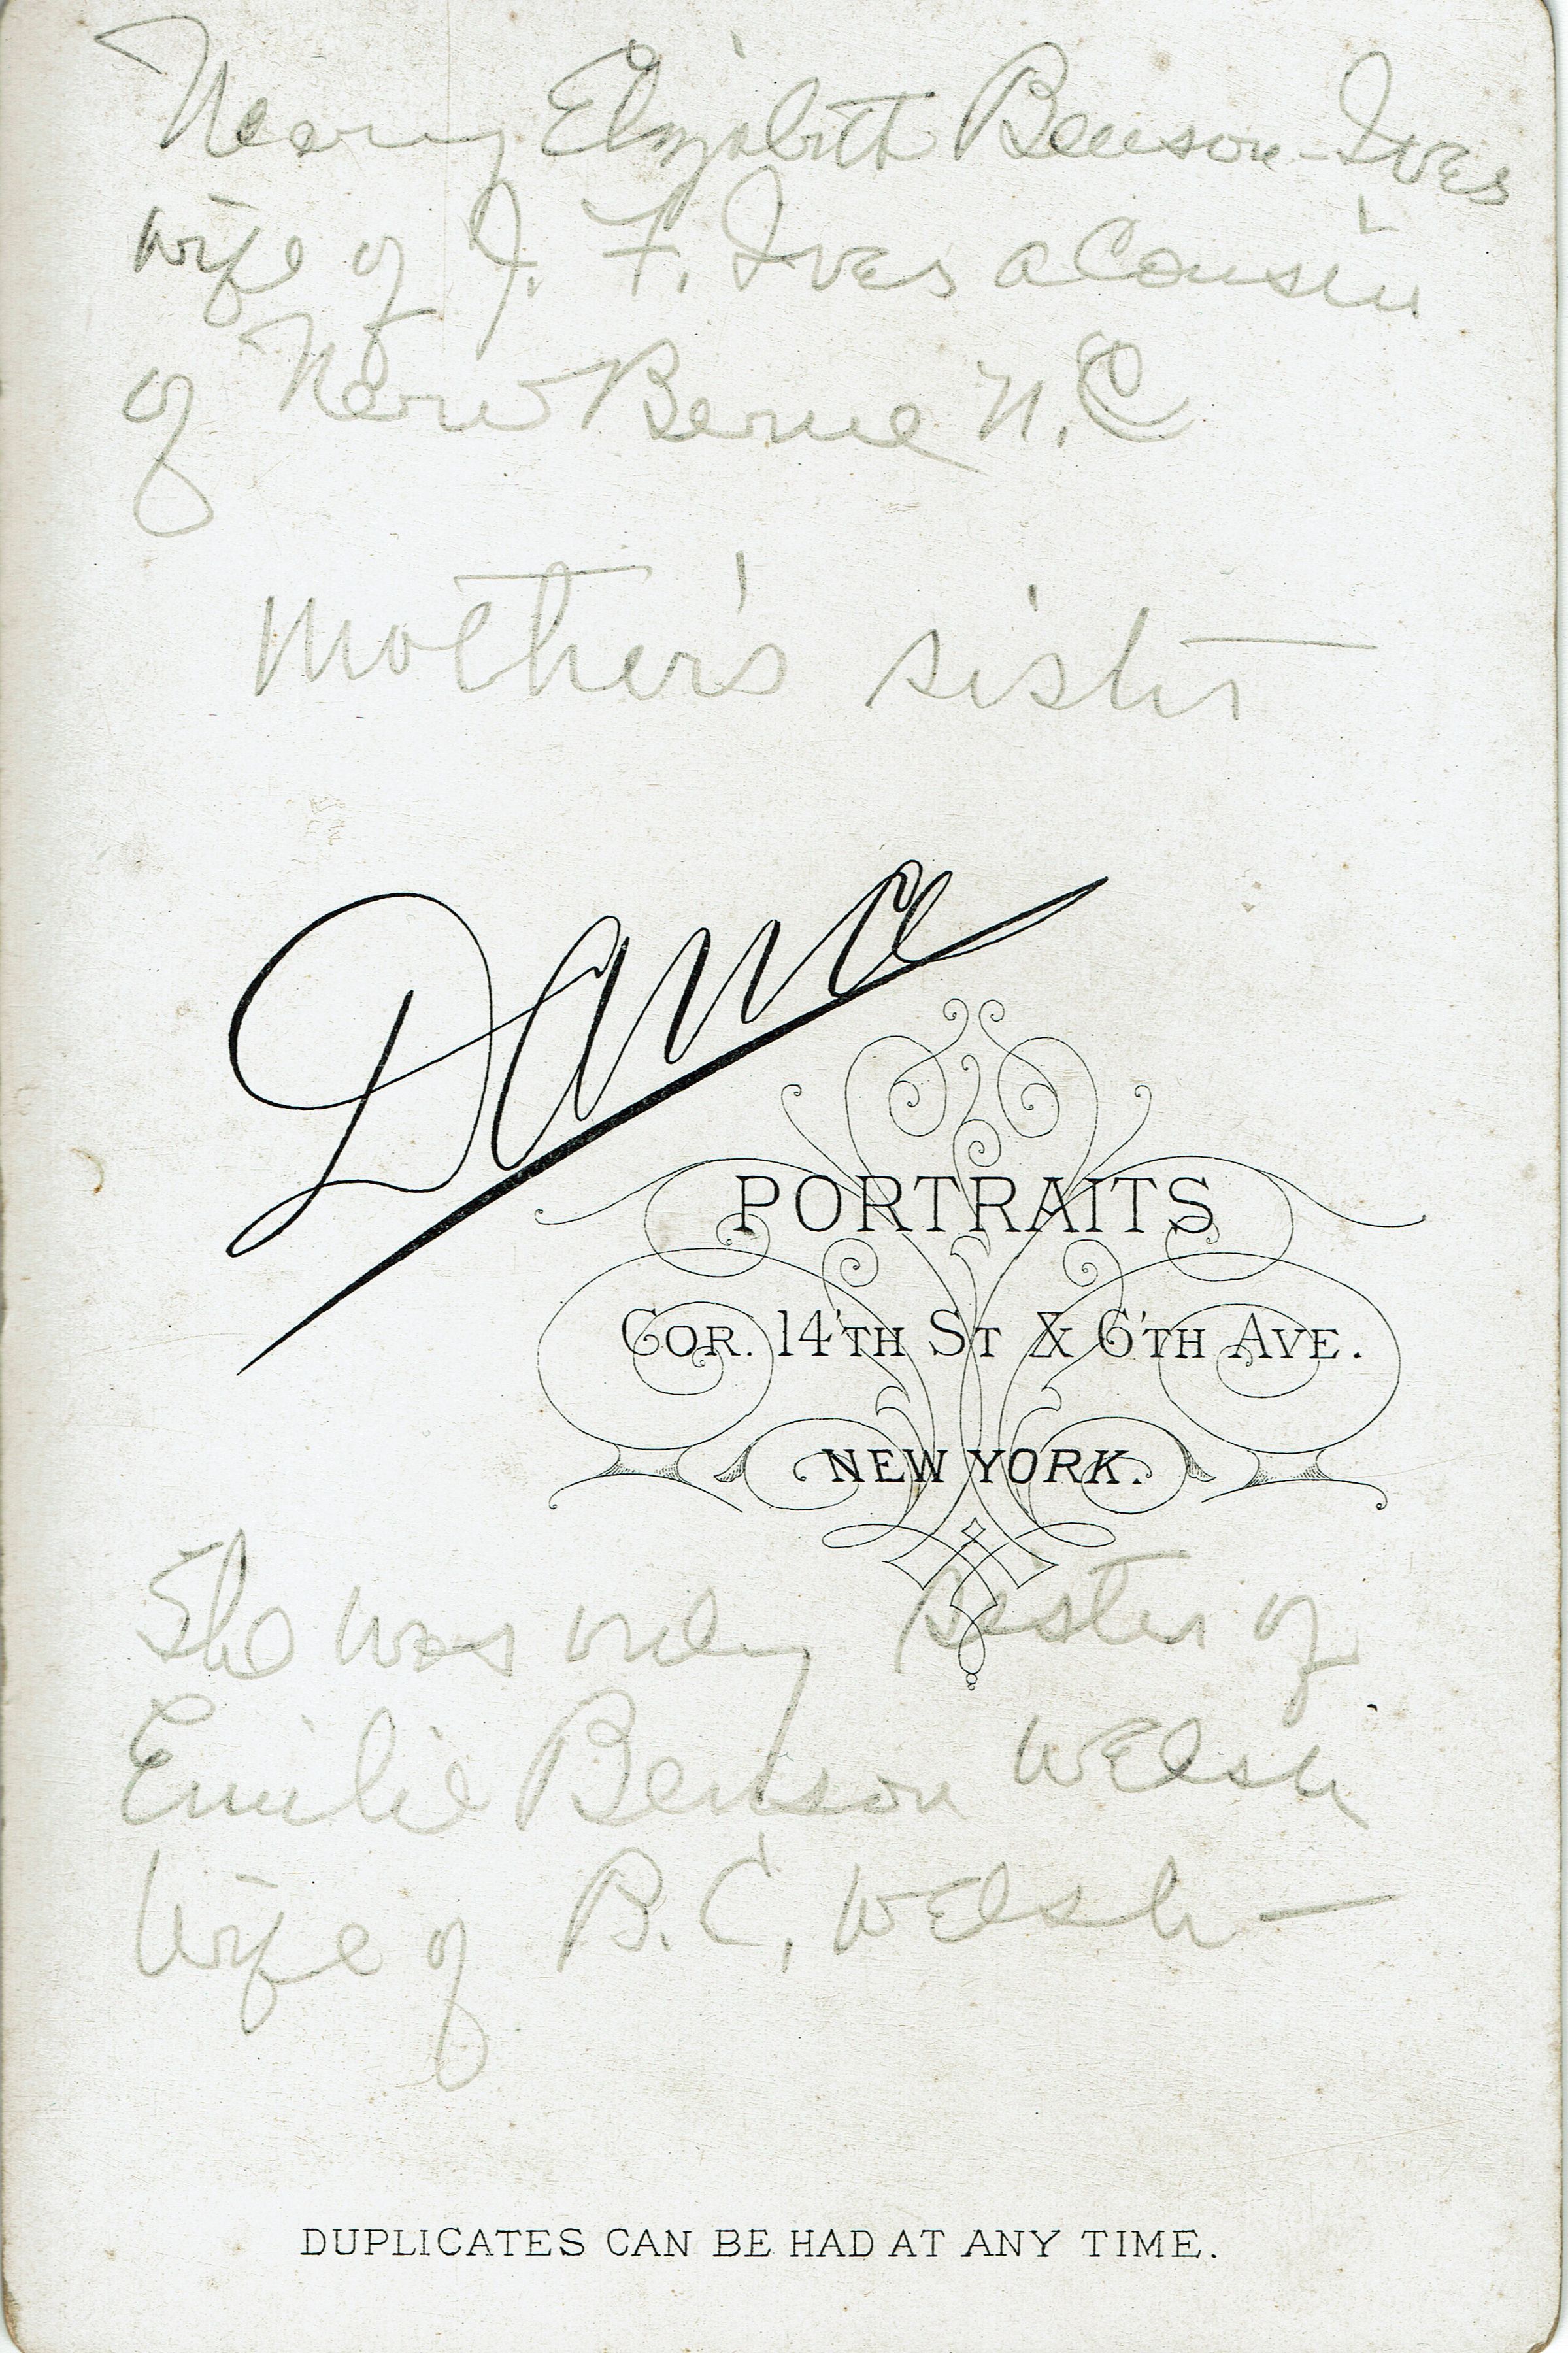 Mary Elizabeth Benson-Ives
wife of J. F. Ives a Cousin
of New Berne N.C
Mother's sister
Dana
PORTRAITS
COR. 14'TH ST & 6'TH AVE.
NEW YORK.
She was only sister of
Emilie Benson Welsh
Wife of B.C. Welsh—
DUPLICATES CAN BE HAD AT ANY TIME.